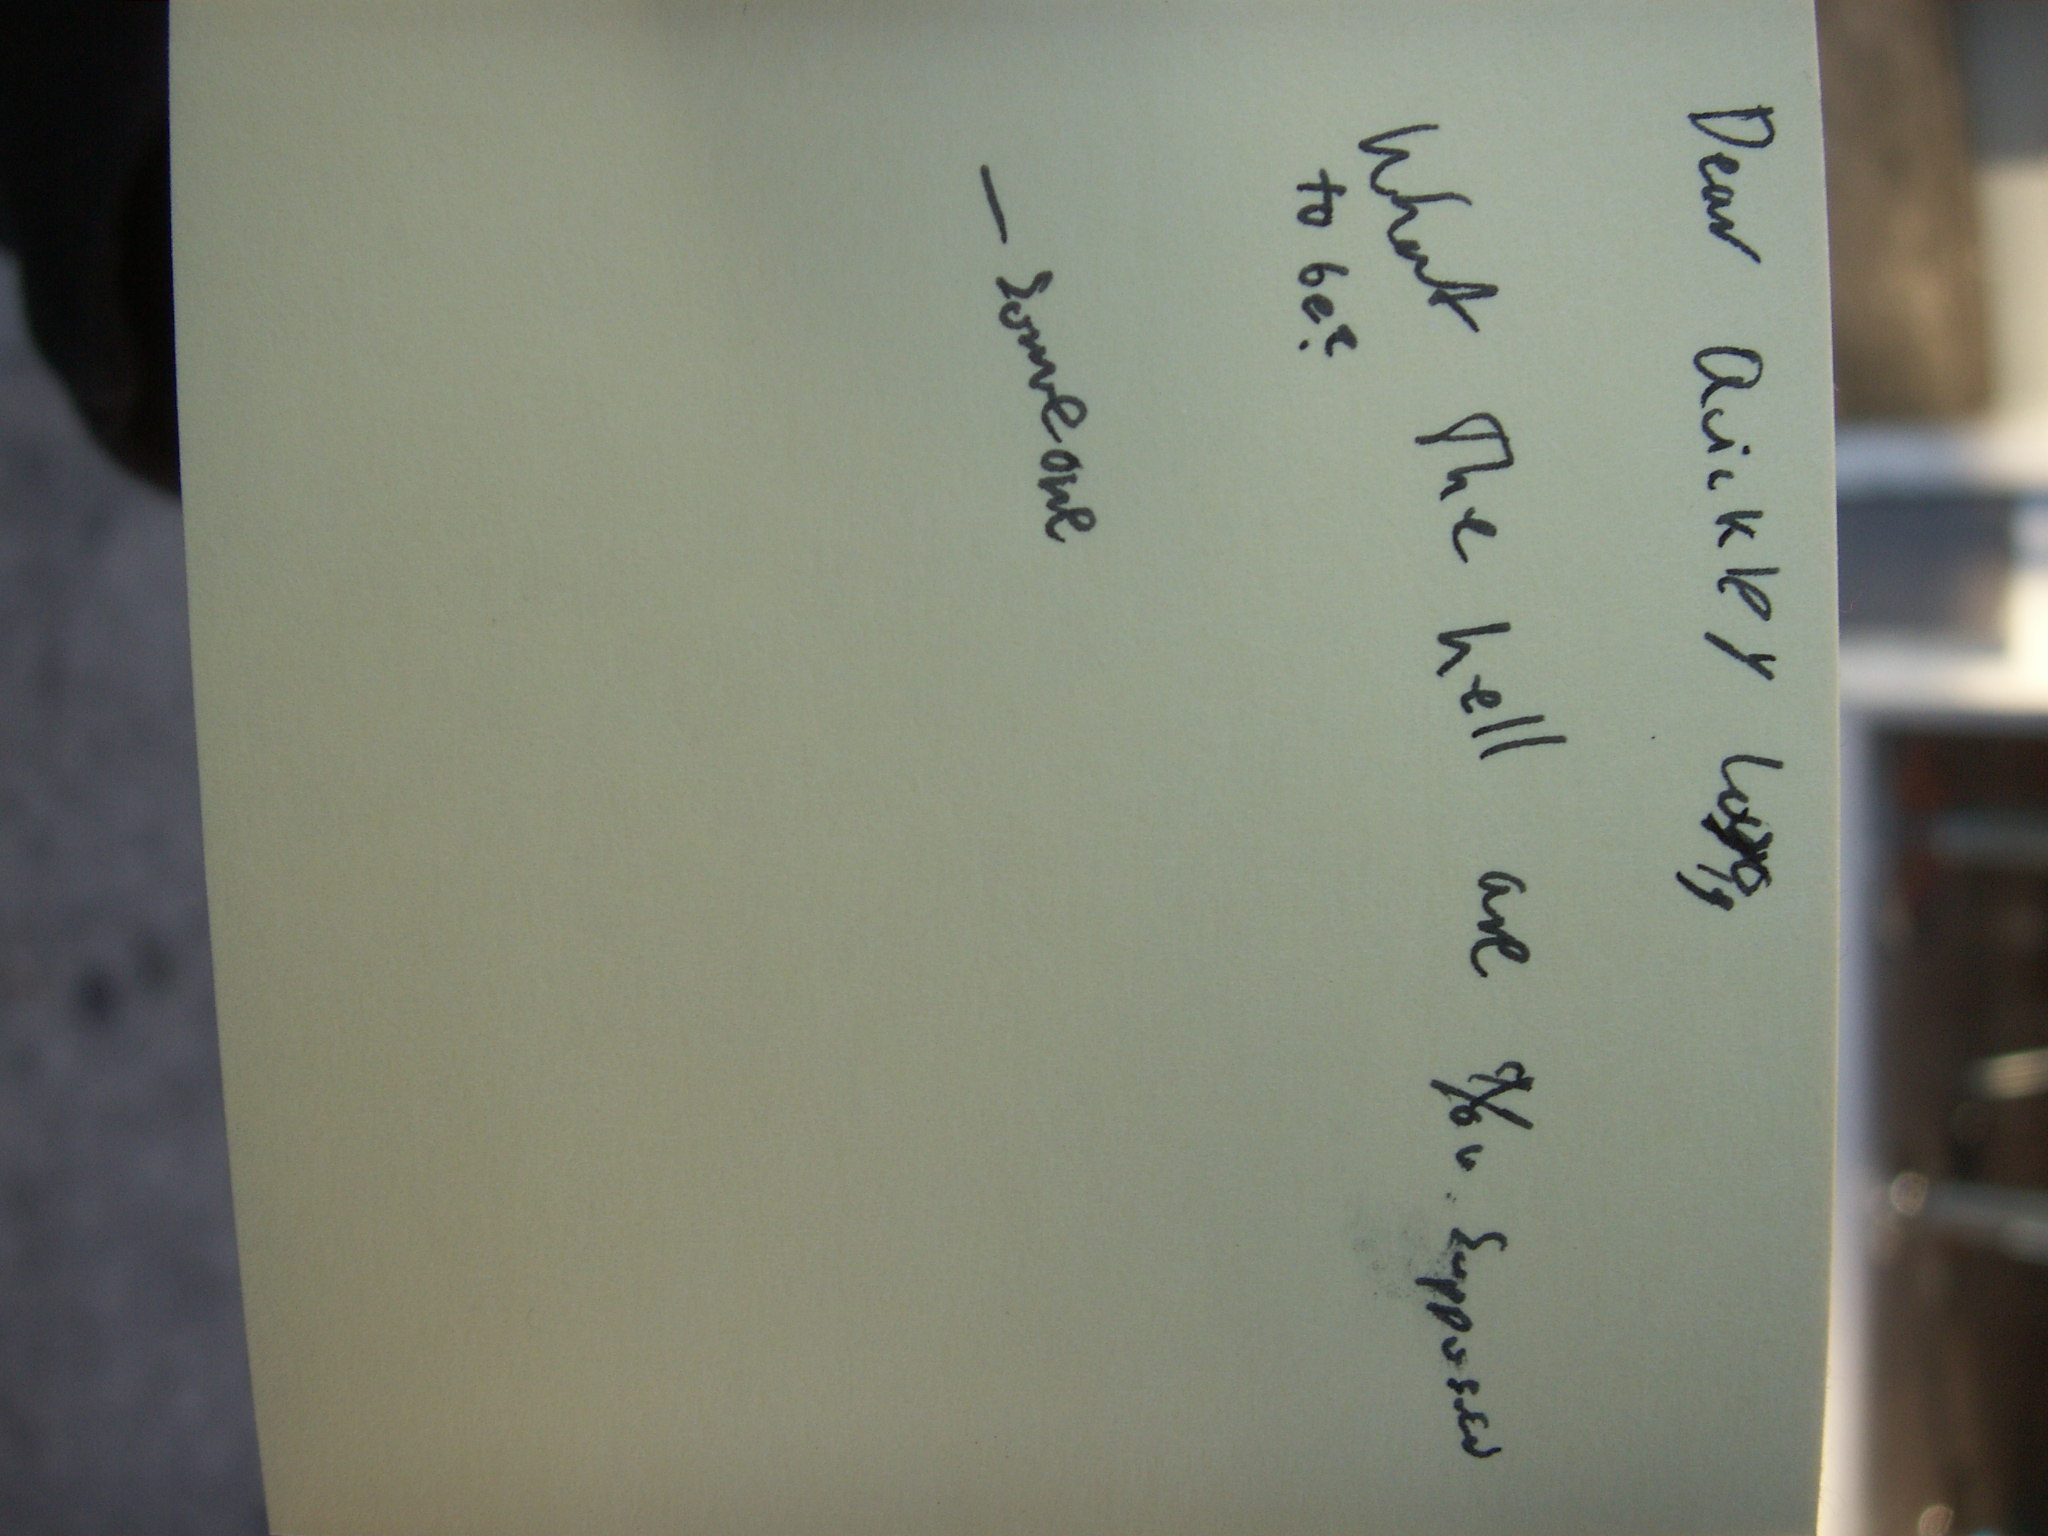 Dear Quickly
What The hell are you supposed
to be?
— Someone